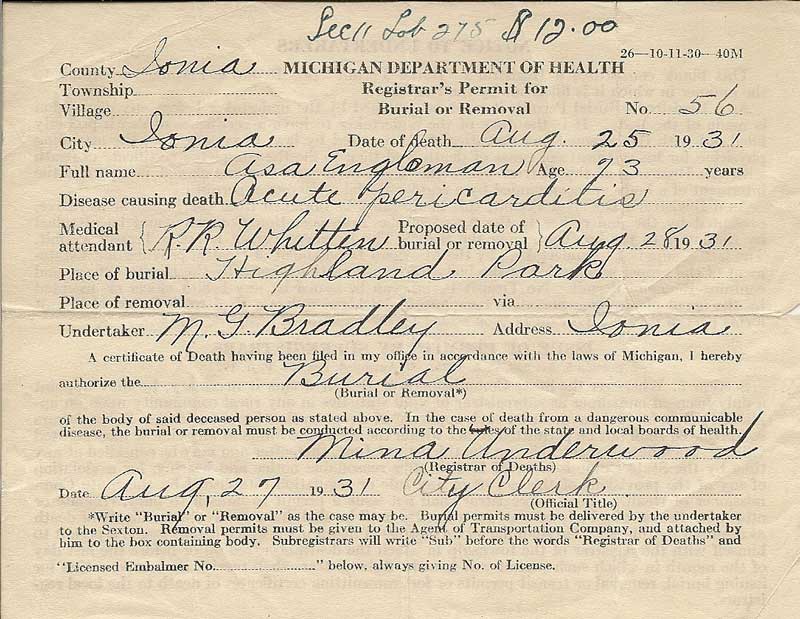 Sec 11 Lot 275 $12.00
26—10-11-30—40M
County Ionia MICHIGAN DEPARTMENT OF HEALTH
Township Registrar's Permit for
Village Burial or Removal No. 56
City Ionia Date of death Aug. 25 1931
Full name Asa Engleman Age 73 years
Disease causing death Acute pericarditis
Medical attendant } R. R. Whitten Proposed date of burial or removal } Aug 28 1931
Place of burial Highland Park
Place of removal via
Undertaker M. G. Bradley Address Ionia
A certificate of Death having been filed in my office in accordance with the laws of Michigan, I hereby
authorize the Burial
(Burial or Removal*)
of the body of said deceased person as stated above. In the case of death from a dangerous communicable
disease, the burial or removal must be conducted according to the rules of the state and local boards of health.
Mina Underwood
(Registrar of Deaths)
Date Aug, 27 1931 City Clerk
(Official Title)
*Write "Burial" or "Removal" as the case may be. Burial permits must be delivered by the undertaker
to the Sexton. Removal permits must be given to the Agent of Transportation Company, and attached by
him to the box containing body. Subregistrars will write "Sub" before the words "Registrar of Deaths" and
"Licensed Embalmer No. " below, always giving No. of License.